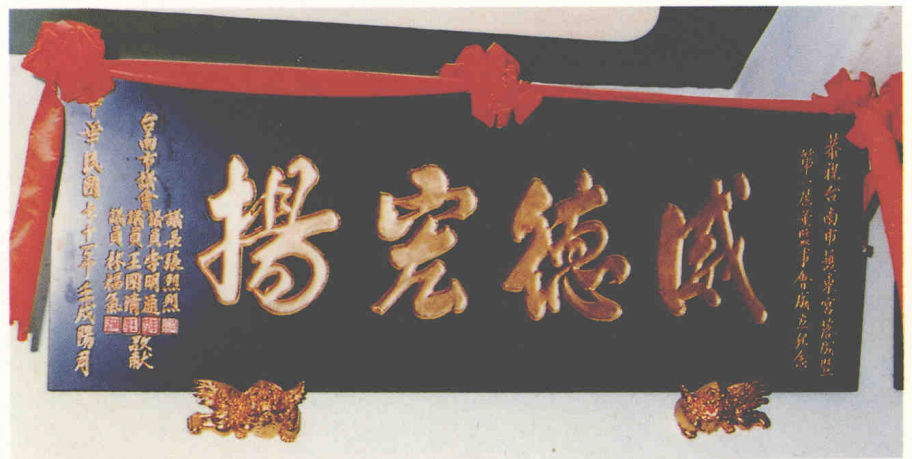 恭祝台南市興東宮落成暨
第一屆董監事會成立紀念
威德宏揚
台南市議會
議長張烈烈
議員李明通
議員王國清
議員林
敬献
中華民國七十一年壬戌陽月